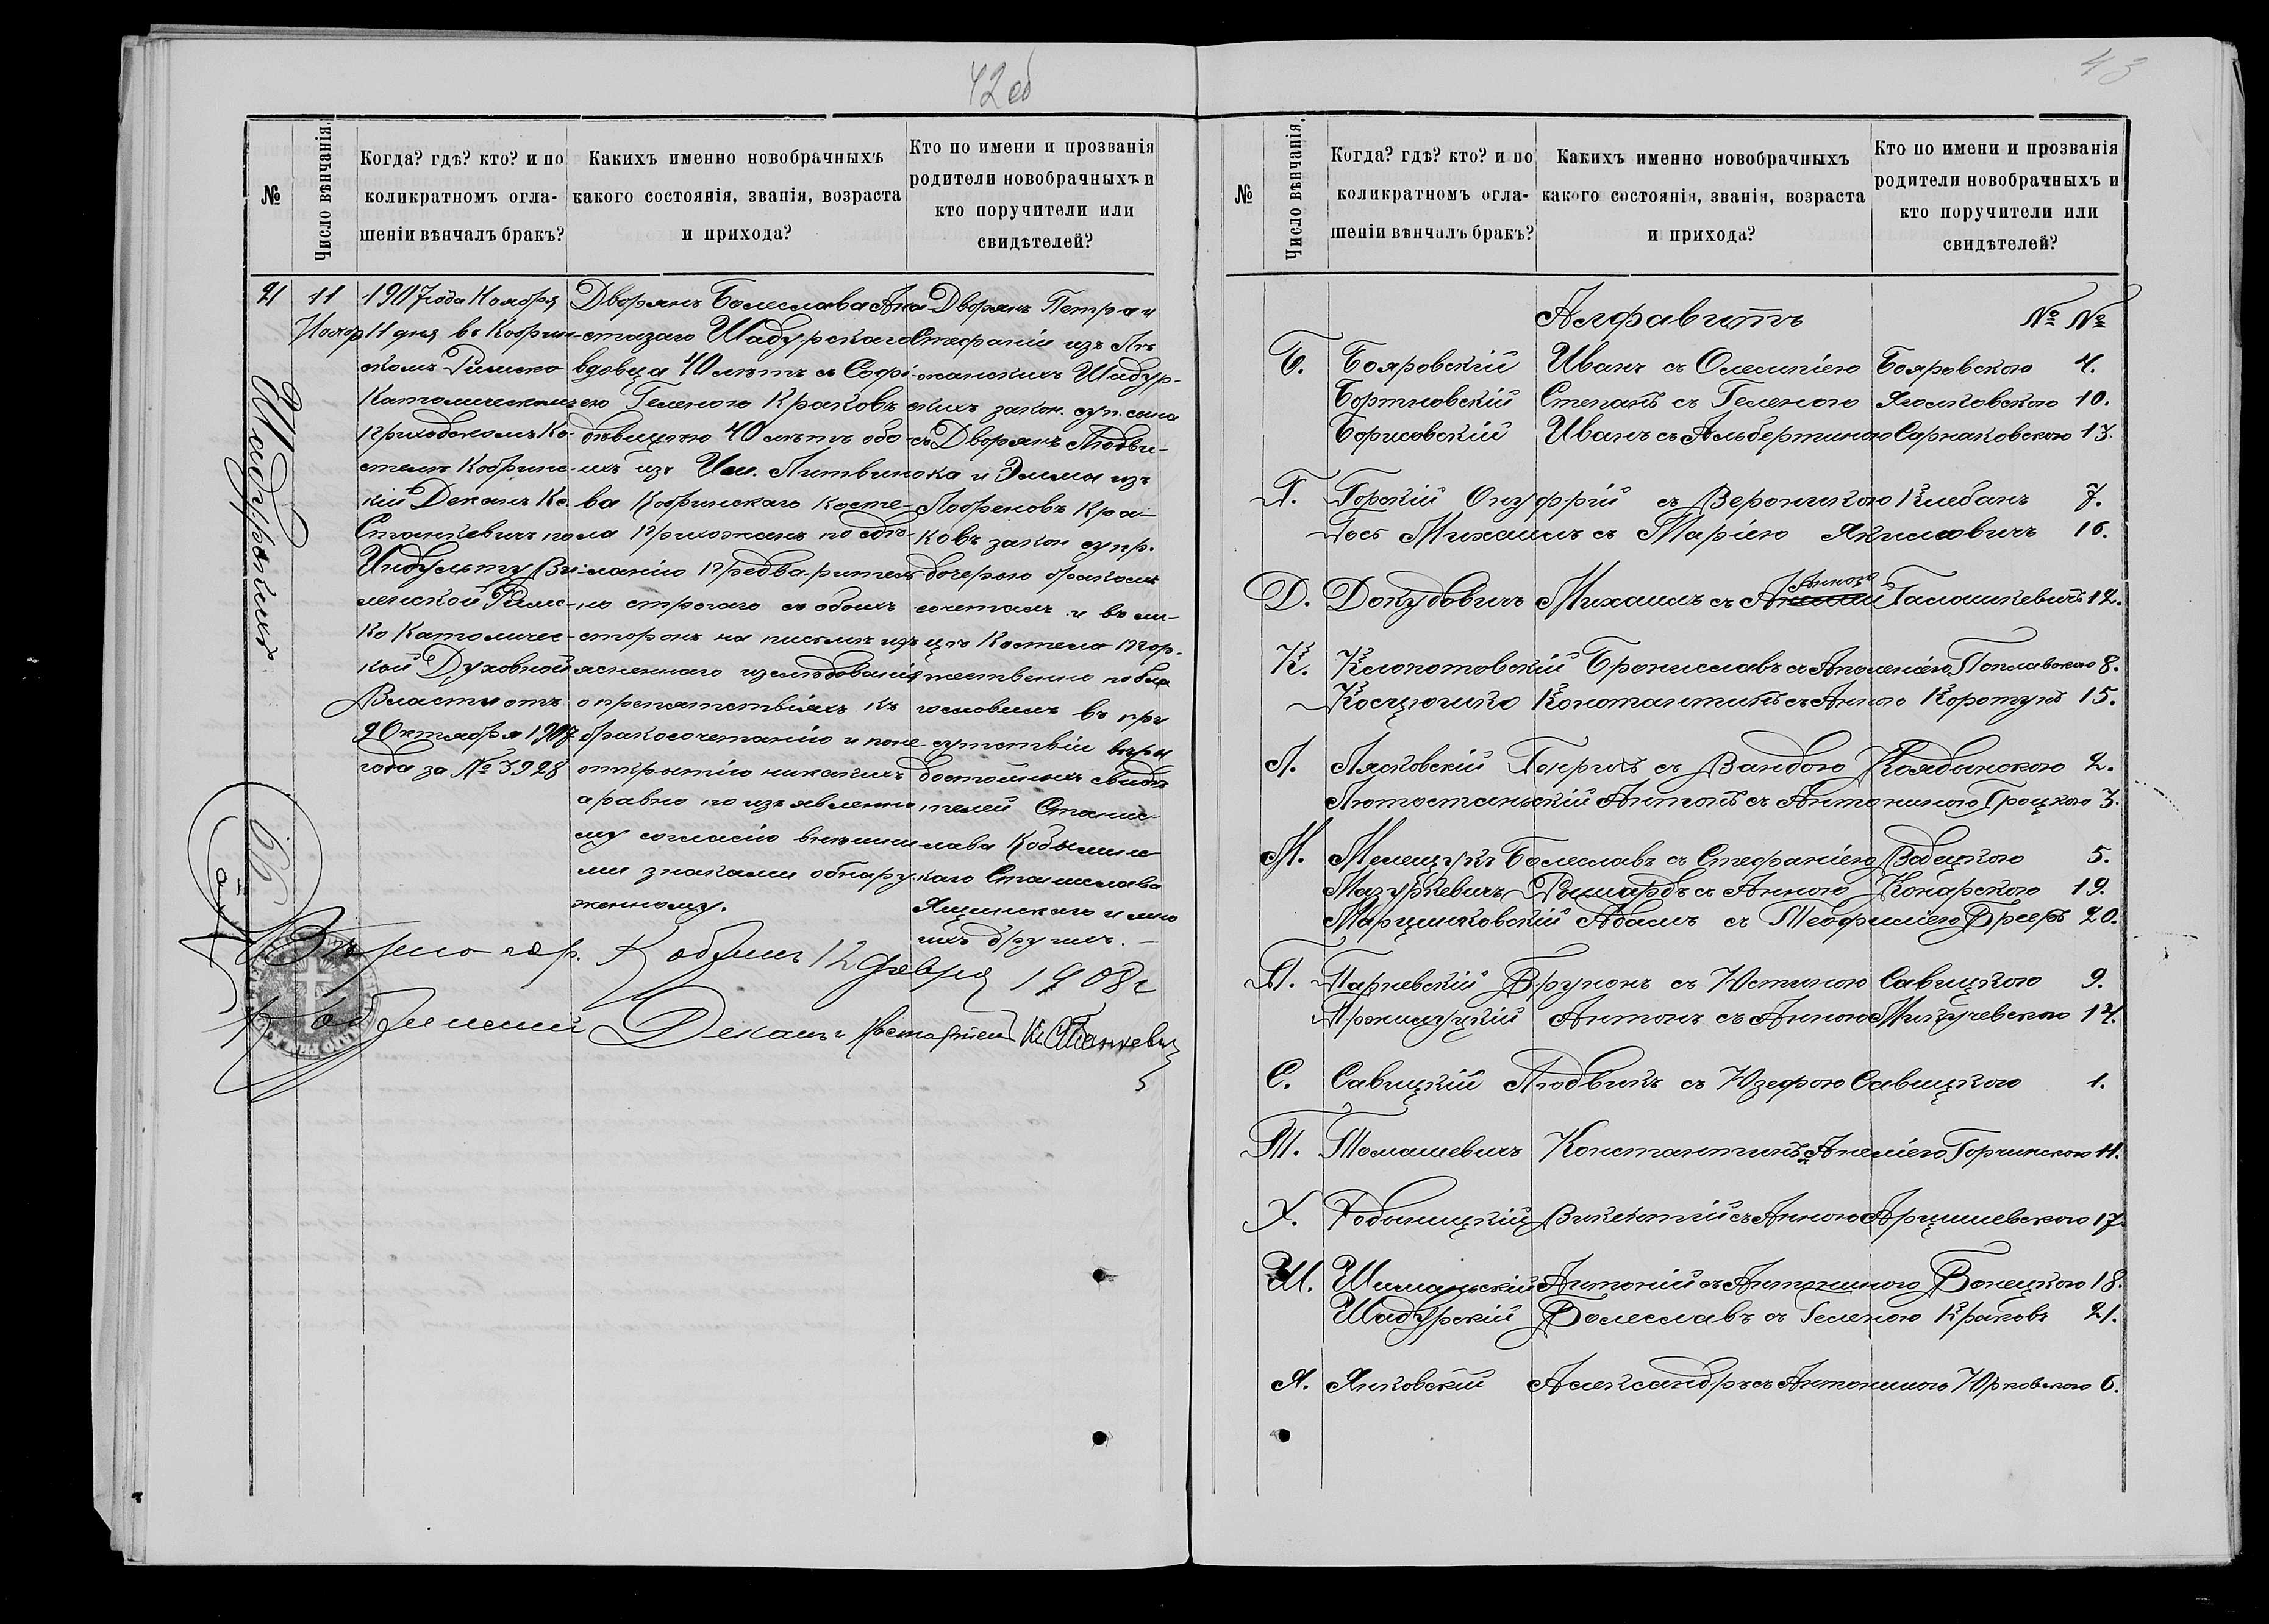 42 об
№
Число вѣнчанія.
Когда? гдѣ? кто? и по
коликратномъ огла-
шеніи вѣнчалъ бракъ?
Какихъ именно новобрачныхъ
какого состоянія, званія, возраста
и прихода?
Кто по имени и прозванія
родители новобрачныхъ и
кто поручители или
свидѣтелей?
21
Шадурскій
11
Нояб
1907 года Ноября
11 дня въ Кобрин-
скомъ Римско
Католическомъ
приходскомъ Ко-
стелѣ Кобринс-
кій Деканъ Кс.
Станкевичъ по
Индульту Ви-
ленской Римс-
ко Католичес-
кой Духовной
Власти отъ
9 Октября 1907
года за № 3928
Дворянъ Болеслава Ана-
стазаго Шадурскаго
вдовца 40 лѣтъ съ Софі-
ею Геленою Краковъ
дѣвицею 40 лѣтъ обо-
ихъ изъ Им. Литвино
ва Кобринскаго Косте-
ла Прихожанъ по сдѣ-
ланію предварительн-
но строгаго съ обоихъ
сторонъ на письмѣ изъ
ясненнаго изслѣдованія
о препятствіяхъ къ
бракосочетанію и поне
открытію никакихъ
а равно по изъявленно
му согласію внѣшни
ми знаками обнару-
женному.
Дворянъ Петра и
Стефаніи изъ
Шадур-
скихъ закон. суп. сына
съ Дворянъ Людви-
ка и Эммы изъ
Кра-
ковъ закон супр.
дочерью бракомъ
сочеталъ и въ ли-
цѣ Костела тор-
жественно побла
гословилъ въ при
сутствіи вѣры
достойныхъ свидѣ
телей Станис
лава Кобылинс
каго Станислава
Ящинскаго и мно
ихъ другихъ. —
Вѣрно гор. Кобринъ 12 Февра 1908 г
Кобринскій Деканъ Настоятель Кс Станкевичъ
43
№
Число вѣнчанія.
Когда? гдѣ? кто? и по
коликратномъ огла-
шеніи вѣнчалъ бракъ?
Какихъ именно новобрачныхъ
какого состоянія, званія, возраста
и прихода?
Кто по имени и прозванія
родители новобрачныхъ и
кто поручители или
свидѣтелей?
Алфавитъ № №
Б. Бояровскій Иванъ съ Олимпіею Бояровскою 4.
Бортновскій Степанъ съ Геленою 10.
Борисовскій Иванъ съ Альбертиною Сарнаковскою 13.
Г. Горскій Онуфрій съ Вероникою Клебанъ 7.
Гось Михаилъ съ Маріею Якимовичъ 16.
Д. Докудовичъ Михаилъ съ Анною Галашкевичъ 12.
К. Клопотовскій Брониславъ съ Аполеніею Поплавскою 8.
Косцюшко Константинъ съ Анною Коротунъ 15.
Л. Лясковскій Генрихъ съ Вандою 2.
Лютостаньскій Антонъ съ Антониною Гроцкою 3.
М. Мелещукъ Болеславъ съ Стефаніею Водецкою 5.
Мазуркевичъ Рышардъ съ Анною Конарскою 19.
Марцинковскій Адамъ съ Теофиліею 20.
П. Парневскій Брунонъ съ Юстиною Савицкою 9.
Антонъ съ Анною 14.
С. Савицкій Людвикъ съ Юзефою Савицкою 1.
Т. Томашевичъ Константинъ съ Анеліею Горчинскою 11.
Х. Ходыницкій Викентій съ Анною Арцишевскою 17.
Ш. Шиманьскій Антоній съ Антониною Вонецкою 18.
Шадурскій Болеславъ съ Геленою Краковъ 21.
Я. Янковскій Александръ съ Антониною Юрковскою 6.